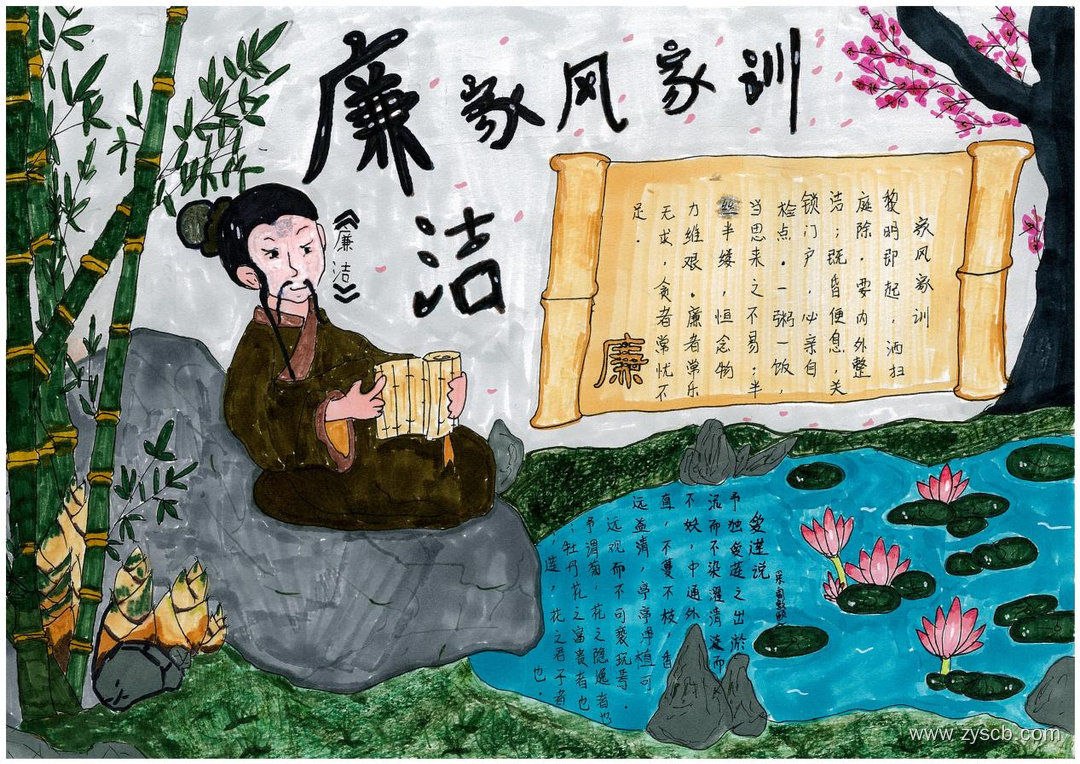 廉洁
家风家训
《廉洁》
家风家训
黎明即起,洒扫
庭除.要内外整
洁;既昏便息,关
锁门户,必亲自
检点.一粥一饭,
当思来之不易;半
丝半缕,恒念物
力维艰.廉者常乐
无求,贪者常忧不
足.
廉
爱莲说
予独爱莲之出淤
泥而不染濯清涟而
不妖,中通外
直,不蔓不枝,香
远益清,亭亭净植可
远观而不可亵玩焉.
予谓菊,花之隐逸者也
;牡丹,花之富贵者也
;莲,花之君子者
也.
www.zyscb.com